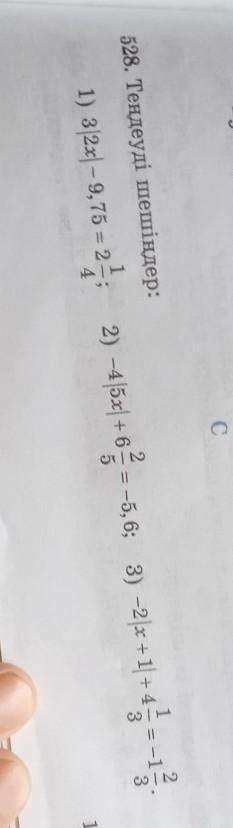 С
528. Теңдеуді шешіңдер:
1) 3|2x| – 9,75 = 2 1/4; 2) –4|5x| + 6 2/5 = –5,6; 3) –2|x + 1| + 4 1/3 = –1 2/3.